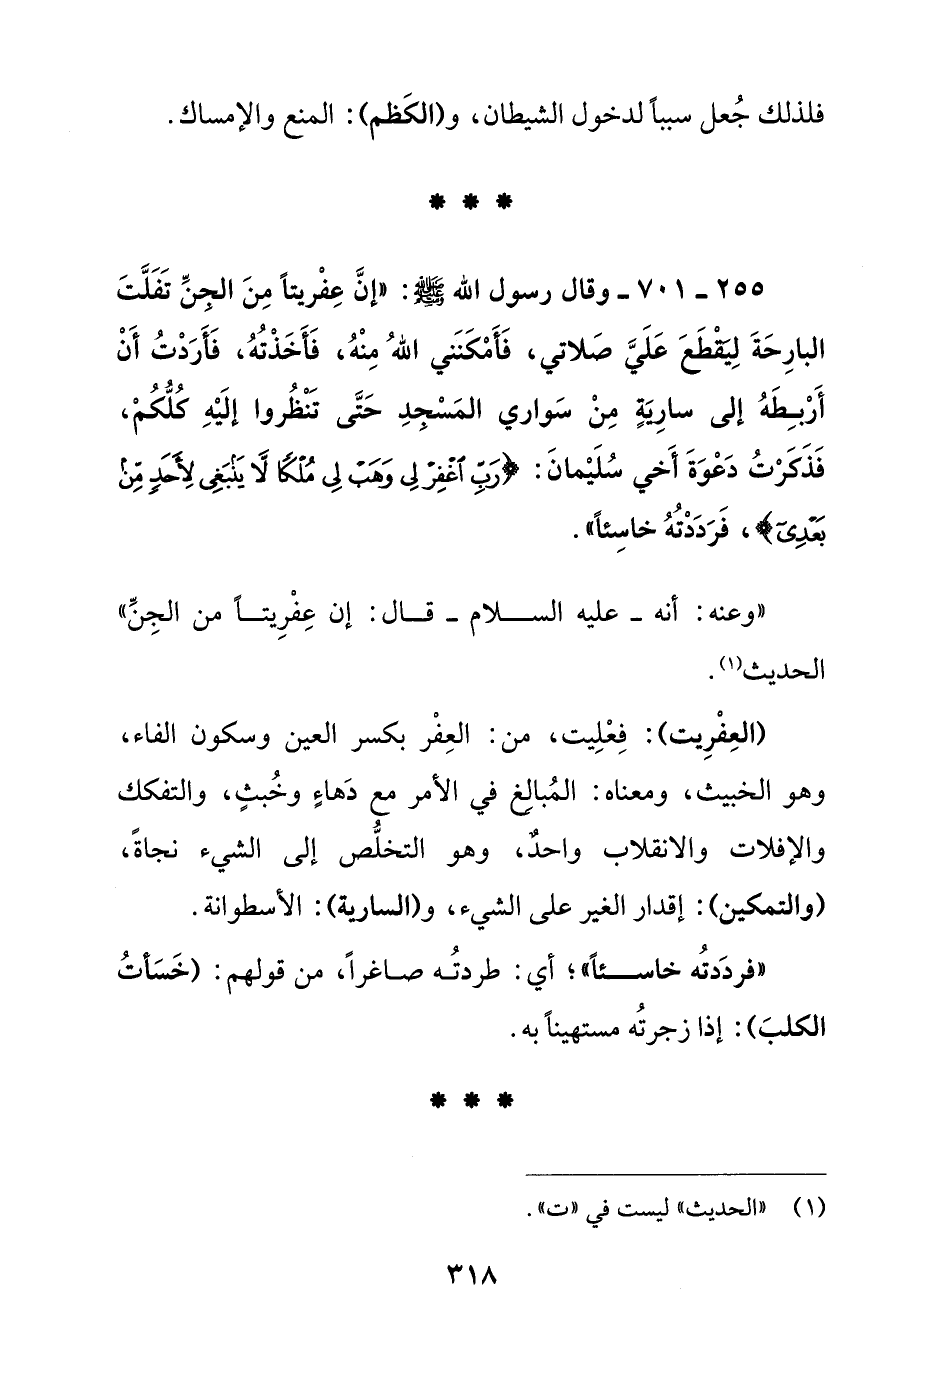 فلذلك جُعل سبباً لدخول الشيطان، و(الكَظم): المنع والإمساك.
* * *
٢٥٥ ـ ٧٠١ ـ وقال رسول الله ﷺ: «إنَّ عِفْريتاً مِنَ الجِنِّ تَفَلَّتَ
البارِحَةَ لِيَقْطَعَ عَلَيَّ صَلاتي، فَأَمْكَنَني اللهُ مِنْهُ، فَأَخَذْتُهُ، فَأَرَدْتُ أَنْ
أَرْبِطَهُ إلى سارِيَةٍ مِنْ سَواري المَسْجِدِ حَتَّى تَنْظُروا إلَيْهِ كُلُّكُمْ،
فَذَكَرْتُ دَعْوَةَ أَخي سُلَيْمانَ: ﴿رَبِّ ٱغْفِرْ لِى وَهَبْ لِى مُلْكًا لَّا يَنۢبَغِى لِأَحَدٍ مِّنۢ
بَعْدِىٓ﴾، فَرَدَدْتُهُ خاسِئاً».
«وعنه: أنه ـ عليه السلام ـ قال: إن عِفْرِيتاً من الجِنِّ»
الحديث(١).
(العِفْرِيت): فِعْلِيت، من: العِفْر بكسر العين وسكون الفاء،
وهو الخبيث، ومعناه: المُبالِغ في الأمر مع دَهاءٍ وخُبثٍ، والتفكك
والإفلات والانقلاب واحدٌ، وهو التخلُّص إلى الشيء نجاةً،
(والتمكين): إقدار الغير على الشيء، و(السارية): الأسطوانة.
«فردَدتُه خاسئاً»؛ أي: طردتُه صاغراً، من قولهم: (خَسَأتُ
الكلبَ): إذا زجرتُه مستهيناً به.
* * *
(١) «الحديث» ليست في «ت».
٣١٨